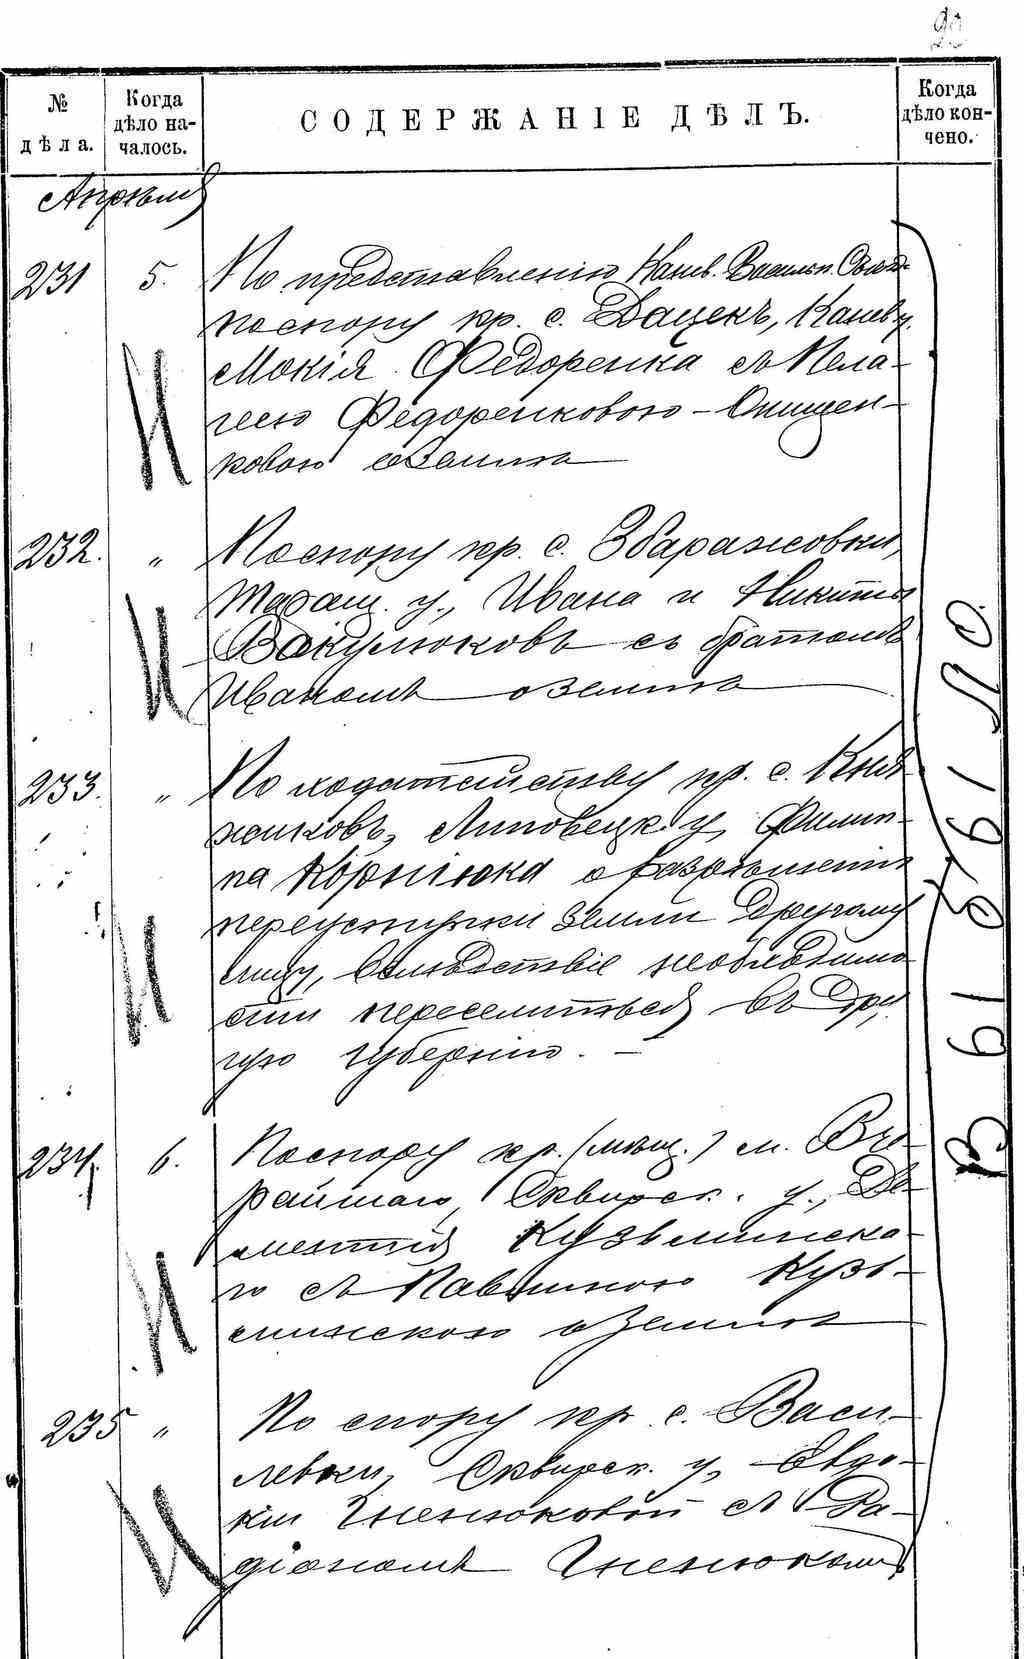 № дѣла.
Когда дѣло началось.
СОДЕРЖАНІЕ ДѢЛЪ.
Когда дѣло кончено.
Апрѣля
231 5. По представленію Канев. Васильк. Съѣзда
по спору кр. с. Дацекъ, Канев. у.
Мокія Федоренка съ Пела-
геею Федоренковою-Онищен-
ковою о землѣ
232. „ По спору кр. с. Збаражовки,
Таращ. у., Ивана и Никиты
Вакулюковъ съ братомъ
Иваномъ о землѣ
233. „ По ходатайству кр. с. Кня-
жиковъ, Липовецк. у. Филип-
па Корніюка о разрѣшеніи
переуступки земли другому
лицу, вслѣдствіе необходимо
сти переселиться въ дру
гую губернію. —
234. 6. По спору кр. (мѣщ.) м. Вче-
райшаго, Сквирск. у., До-
ментія Кузьминска-
го съ Павлиною Кузь-
минскою о землѣ
235 „ По спору кр. с. Васи-
левки, Сквирск. у. Евдо-
кіи Гненюковой съ Ра-
діономъ Гненюкомъ